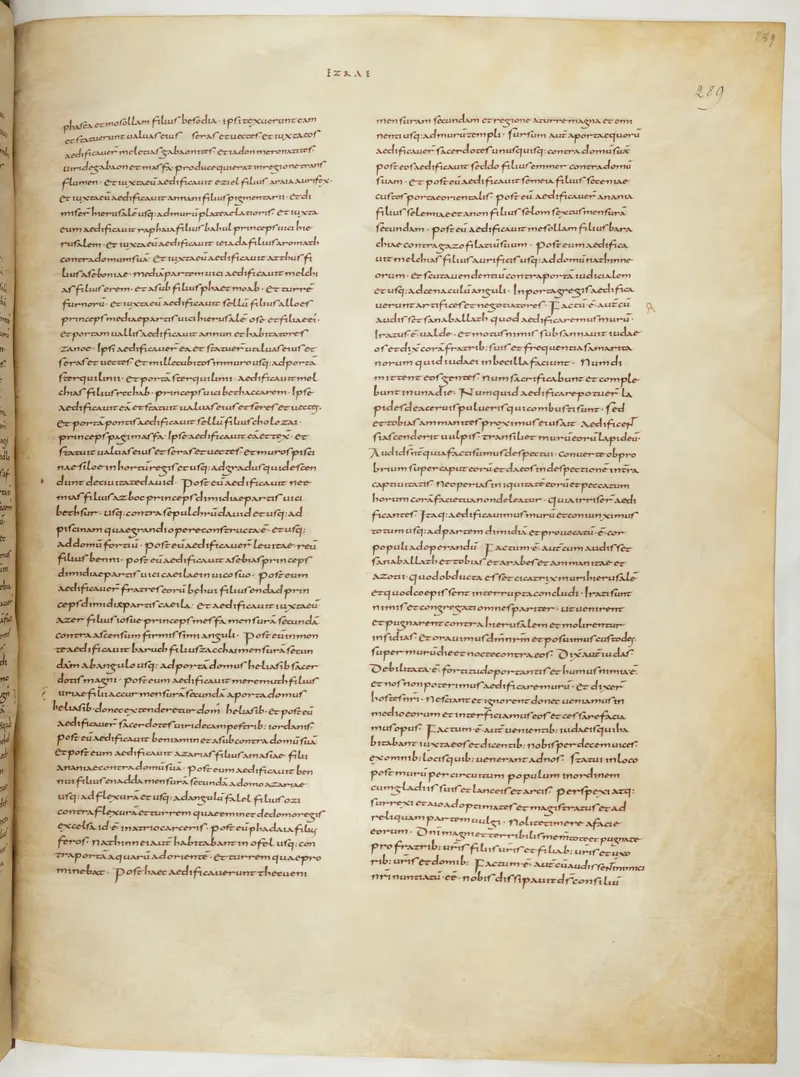 IZRAE
289
289
phasea et mosollam filius besedia · ipsi texuerunt eam
et statuerunt ualuas eius seras et uectes et iuxta eos
aedificauer̄ meletias gabaonites et iadon meronatites
uiri de gabaon et massa pro duce qui erat in regione trans
flumen · Et iuxta eū aedificauit eziel filius araia aurifex ·
et iuxta eū aedificauit annani filius pigmentarii · et di
miser̄ hierusalē usq; ad murū plateae latioris · et iuxta
eum aedificauit raphaia filius bahul princeps uici hie
rusalem · et iuxta eū aedificauit ieiada filius aromath
contra domum suā · Et iuxta eū aedificauit attus fi
lius aseboniae · media partem uici aedificauit melchi
as filius erem · et asub filius phaet moab · et turrē
furnorū · et iuxta eū aedificauit sellū filius alloes
princeps mediae partis uici hierusalē · ose et filiae ei ·
et portam uallis aedificauit annun et habitatores
zanoe · Ipsi aedificauer̄ ea et statuer̄ ualuas eius et
seras et uectes · et mille cubitos in muro usq; ad portā
sterquilinii · Et portā sterquilinii · aedificauit mel
chias filius rechab · princeps uici bethaccarem · Ipse
aedificauit eā et statuit ualuas eius et seres et uectes ·
et portā pontis aedificauit sellū filius cholozai ·
princeps pagi massa · Ipse aedificauit eā et tex̄ · et
statuit ualuas eius et seras et uectes · et muros pisci
nae siloe in hortū regis et usq; ad gradus qui descen
dunt de ciuitate dauid · Post eū aedificauit nee
mias filius azboc princeps dimidiae partis uici
bethsur · usq; contra sepulchrū dauid et usq; ad
piscinam quae grandi opere constructa ē · et usq;
ad domū fortiū · Post eū aedificauer̄ leuitae · reū
filius benni · post eū aedificauit asebias princeps
dimidiae partis uici caeilae in uico suo · post eum
aedificauer̄ fratres eorū behui filius endad prin
ceps dimidiae partis caeila · et aedificauit iuxta eū
azer filius iosue princeps messa mensurā secundā
contra ascensum firmissimi anguli · Post eū in mon
te aedificauit baruch filius zacchai mensurā secun
dam ab angulo usq; ad portā domus heliasib sacer
dotis magni · post eum aedificauit meremuth filius
uriae filii accur mensurā secundā a porta domus
heliasib · donec extenderetur dom; heliasib · et post eū
aedificauer̄ sacerdotes uiri de campestrib; iordanis ·
post eū aedificauit beniamin et asub contra domū suā ·
et post eum aedificauit azarias filius amasiae filii
ananiae contra domū suā · post eum aedificauit ben
nui filius enadda mensurā secundā a domo azariae
usq; ad flexurā et usq; ad angulū · falel filius ozi
contra flexurā et turrem quae eminet de domo regis
excelsa id ē in atrio carceris · post eū phadaia filius
feros · nathinnei aut̄ habitabant in ofel usq; con
tra portā aquarū ad orientē · et turrem quae pro
minebat · Post haec aedificauerunt thecueni
mensuram secundam et regione a turre magna et emi
nenti usq; ad murū templi · sursum aut̄ a porta equorū
aedificauer̄ sacerdotes unusquisq; contra domū suā
post eos aedificauit seddo filius emmer contra domū
suam · et post eū aedificauit semeia filius seceniae ·
custos portae orientalis · post eū aedificauer̄ anania
filius selemia et anon filius selom sextus mensurā
secundam · post eū aedificauit mesollam filius bara
chiae contra gazofilatiū suum · post eum aedifica
uit melchias filius aurificis usq; ad domū nathinne
orum · et scuta uendentiū contra portā iudicialem
et usq; ad cenaculū anguli · In porta gregis aedifica
uerunt artifices et negotiatores · Factū ē · aut̄ cū
audisset sanaballath quod aedificaremus murū ·
Iratus ē ualde · et motus nimis subsannauit iudae
os et dix̄ corā fratrib; suis et frequentia samarita
norum quid iudaei inbecilla faciunt · Num di
mittent eos gentes · num sacrificabunt et comple
bunt in una die · Numquid aedificare poter̄ la
pides de aceruis pulueris qui combusti sunt · sed
et tobias ammanites proximus eius ait · Aedificent
si ascenderit uulpis · transiliet murū eorū lapideū ·
Audi dn̄s quia facti sumus despectus · conuerte obpro
brium super caput eorū et da eos in despectione in terra
captiuitatis · Ne operias iniquitatē eorū et peccatum
horum corā facie tua non deleatur · quia irriser̄ aedi
ficantes · Itaq; aedificauimus murū et coniunximus
totum usq; ad partem dimidiā et prouocatū ē · cor
populi ad operandū · Factum ē · aut̄ cum audisset
sanaballath et tobias et arabes et ammanitae et
azotii · quod obducta esset cicatrix muri hierusalē
et quod coepissent interrupta concludi · Irati sunt
nimis et congregati omnes pariter · ut uenirent
et pugnarent contra hierusalem et molirentur
insidias · et orauimus dm̄ nrm̄ et posuimus custodes
super murū die et nocte contra eos · Dix̄ aut̄ iudas ·
Debilitata ē · fortitudo portantis et humus nimia ē ·
et nos non poterimus aedificare murū · Et dixer̄
hostes nr̄i · Nesciant et ignorent donec ueniamus in
medio eorum et interficiamus eos et cessare facia
mus opus · Factum ē · aut̄ uenientib; iudaeis qui ha
bitabant iuxta eos et dicentib; nobis per decem uices ·
ex omnib; locis quib; uenerant ad nos · statui in loco
post murū per circuitum populum in ordinem
cum gladiis suis et lanceis et arcis · perspexi atq;
surrexi et aio ad optimates et magistratus et ad
reliquam partem uulgi · Nolite timere a facie
eorum · Dn̄i magni et terribilis mem̄tote et pugnate
pro fratrib; uris̄ filiis uris̄ et filiab; uris̄ et uxo
rib; uris̄ et domib; Factum · ē · aut̄ cū audissent inimici
nr̄i nuntiatū · eē · nobis dissipauit ds̄ consiliū